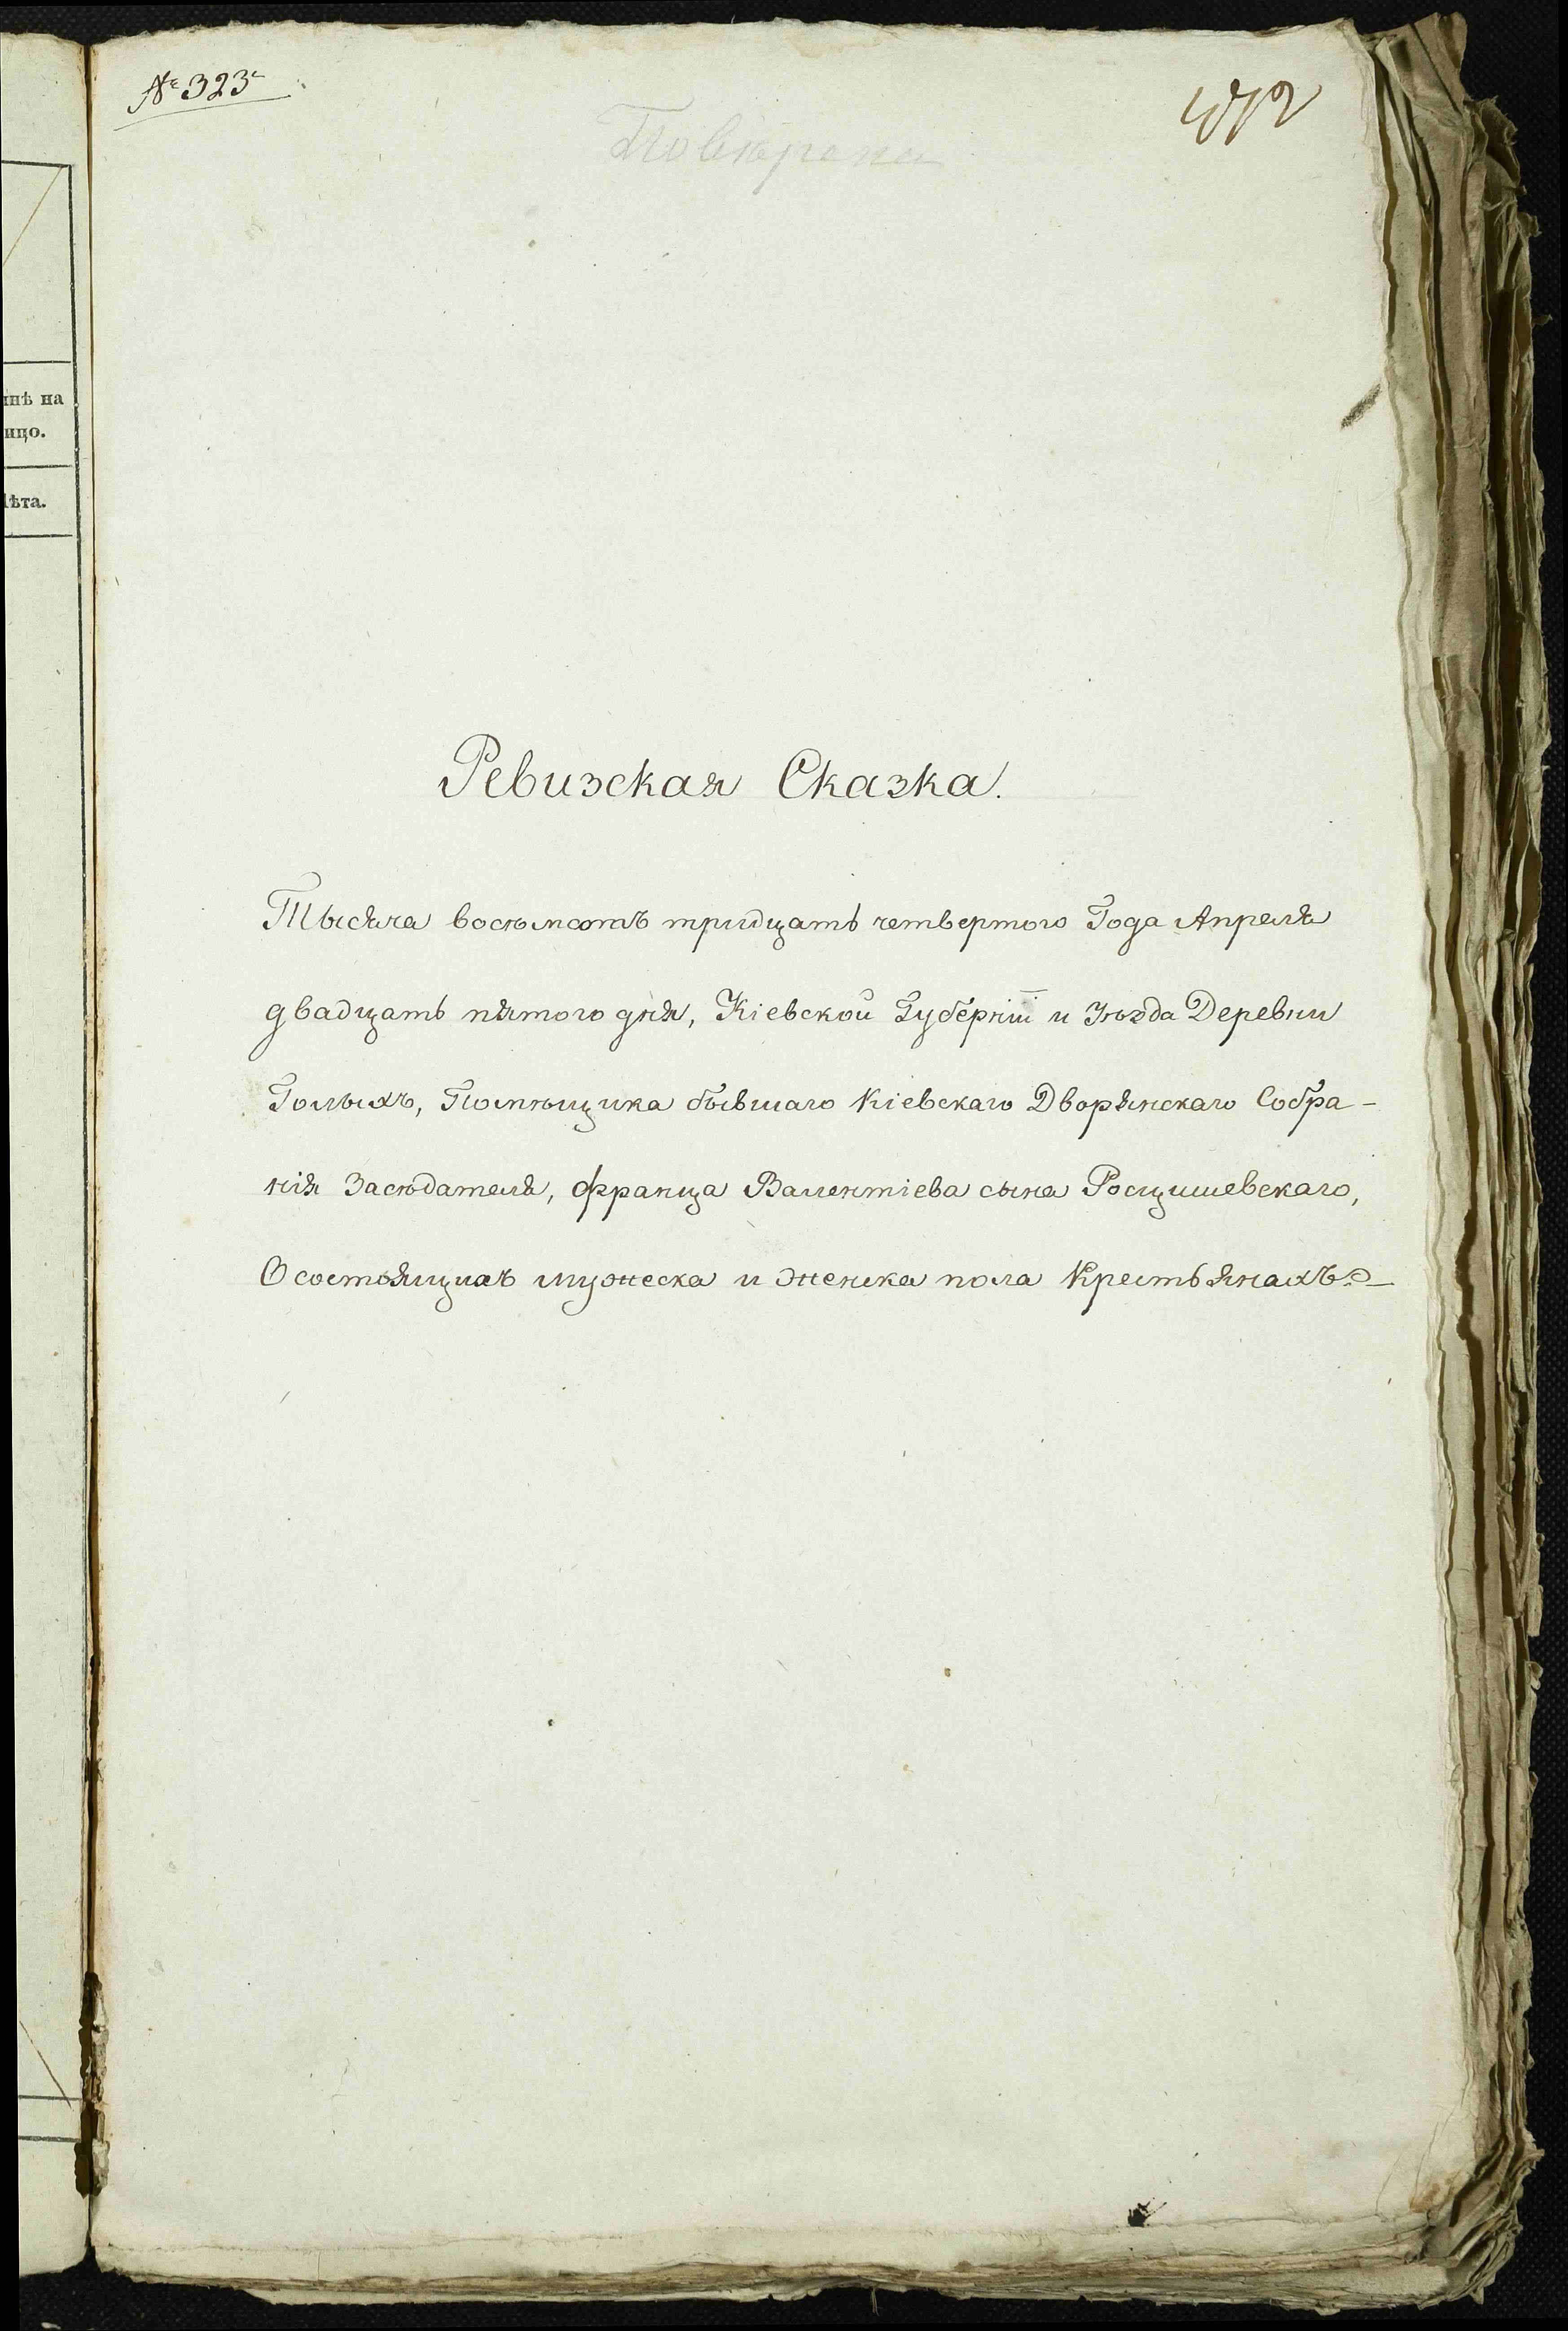 № 323
Повѣрена
Ревизская Сказка.
Тысяча восьмсотъ тридцать четвертого Года Апреля
двадцать пятого дня, Кіевской Губерніи и Уѣзда Деревни
Голыхъ, Помѣщика бывшаго Кіевскаго Дворянскаго Собра-
нія Засѣдателя, Франца Валентіева сына Росцишевскаго,
О состоящихъ мужеска и женска пола Крестьянахъ.
инѣ на
ицо.
ѣта.